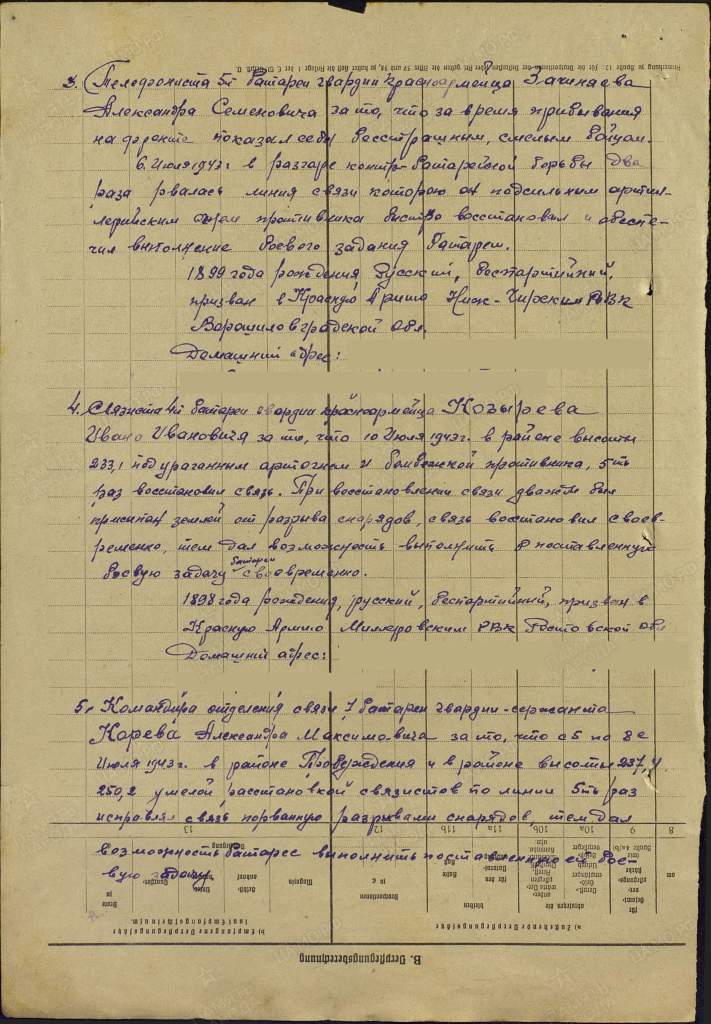 3. Телефониста 5й батареи гвардии красноармейца Зачинаева
Александра Семеновича за то, что за время прибывания
на фронте показал себя бесстрашным, смелым бойцом.
6 Июля 1943г. в разгаре контр-батарейной борьбы два
раза рвалась линия связи которою он под сильным артил-
лерийским огнем противника быстро восстановил и обеспе-
чил выполнение боевого задания батареи.
1899 года рождения, Русский, беспартийный,
призван в Красную Армию Ниж-Чирским РВК
Ворошиловградской обл.
Домашний адрес:
4. Связиста 4й батареи гвардии красноармейца Козырева
Ивана Ивановича за то, что 10 Июля 1943г. в районе высоты
233,1 под ураганным артогнем и бомбежкой противника, 5ть
раз восстановил связь. При восстановлении связи дважды был
присыпан землей от разрыва снарядов, связь восстановил своев-
ременно, тем дал возможность выполнить поставленную
боевую задачу батареи своевременно.
1898 года рождения, русский, беспартийный, призван в
Красную Армию Миллеровским РВК Ростовской обл
Домашний адрес:
5. Командира отделения связи 7 батареи гвардии-сержанта
Карева Александра Максимовича за то, что с 5 по 8е
Июля 1943г. в районе и в районе высоты 237,4
250,2 умелой расстановкой связистов по линии 5ть раз
исправлял связь порванную разрывами снарядов, тем дал
возможность батарее выполнить поставленную ей бое-
вую задачу.
B. Verpflegungsberechnung